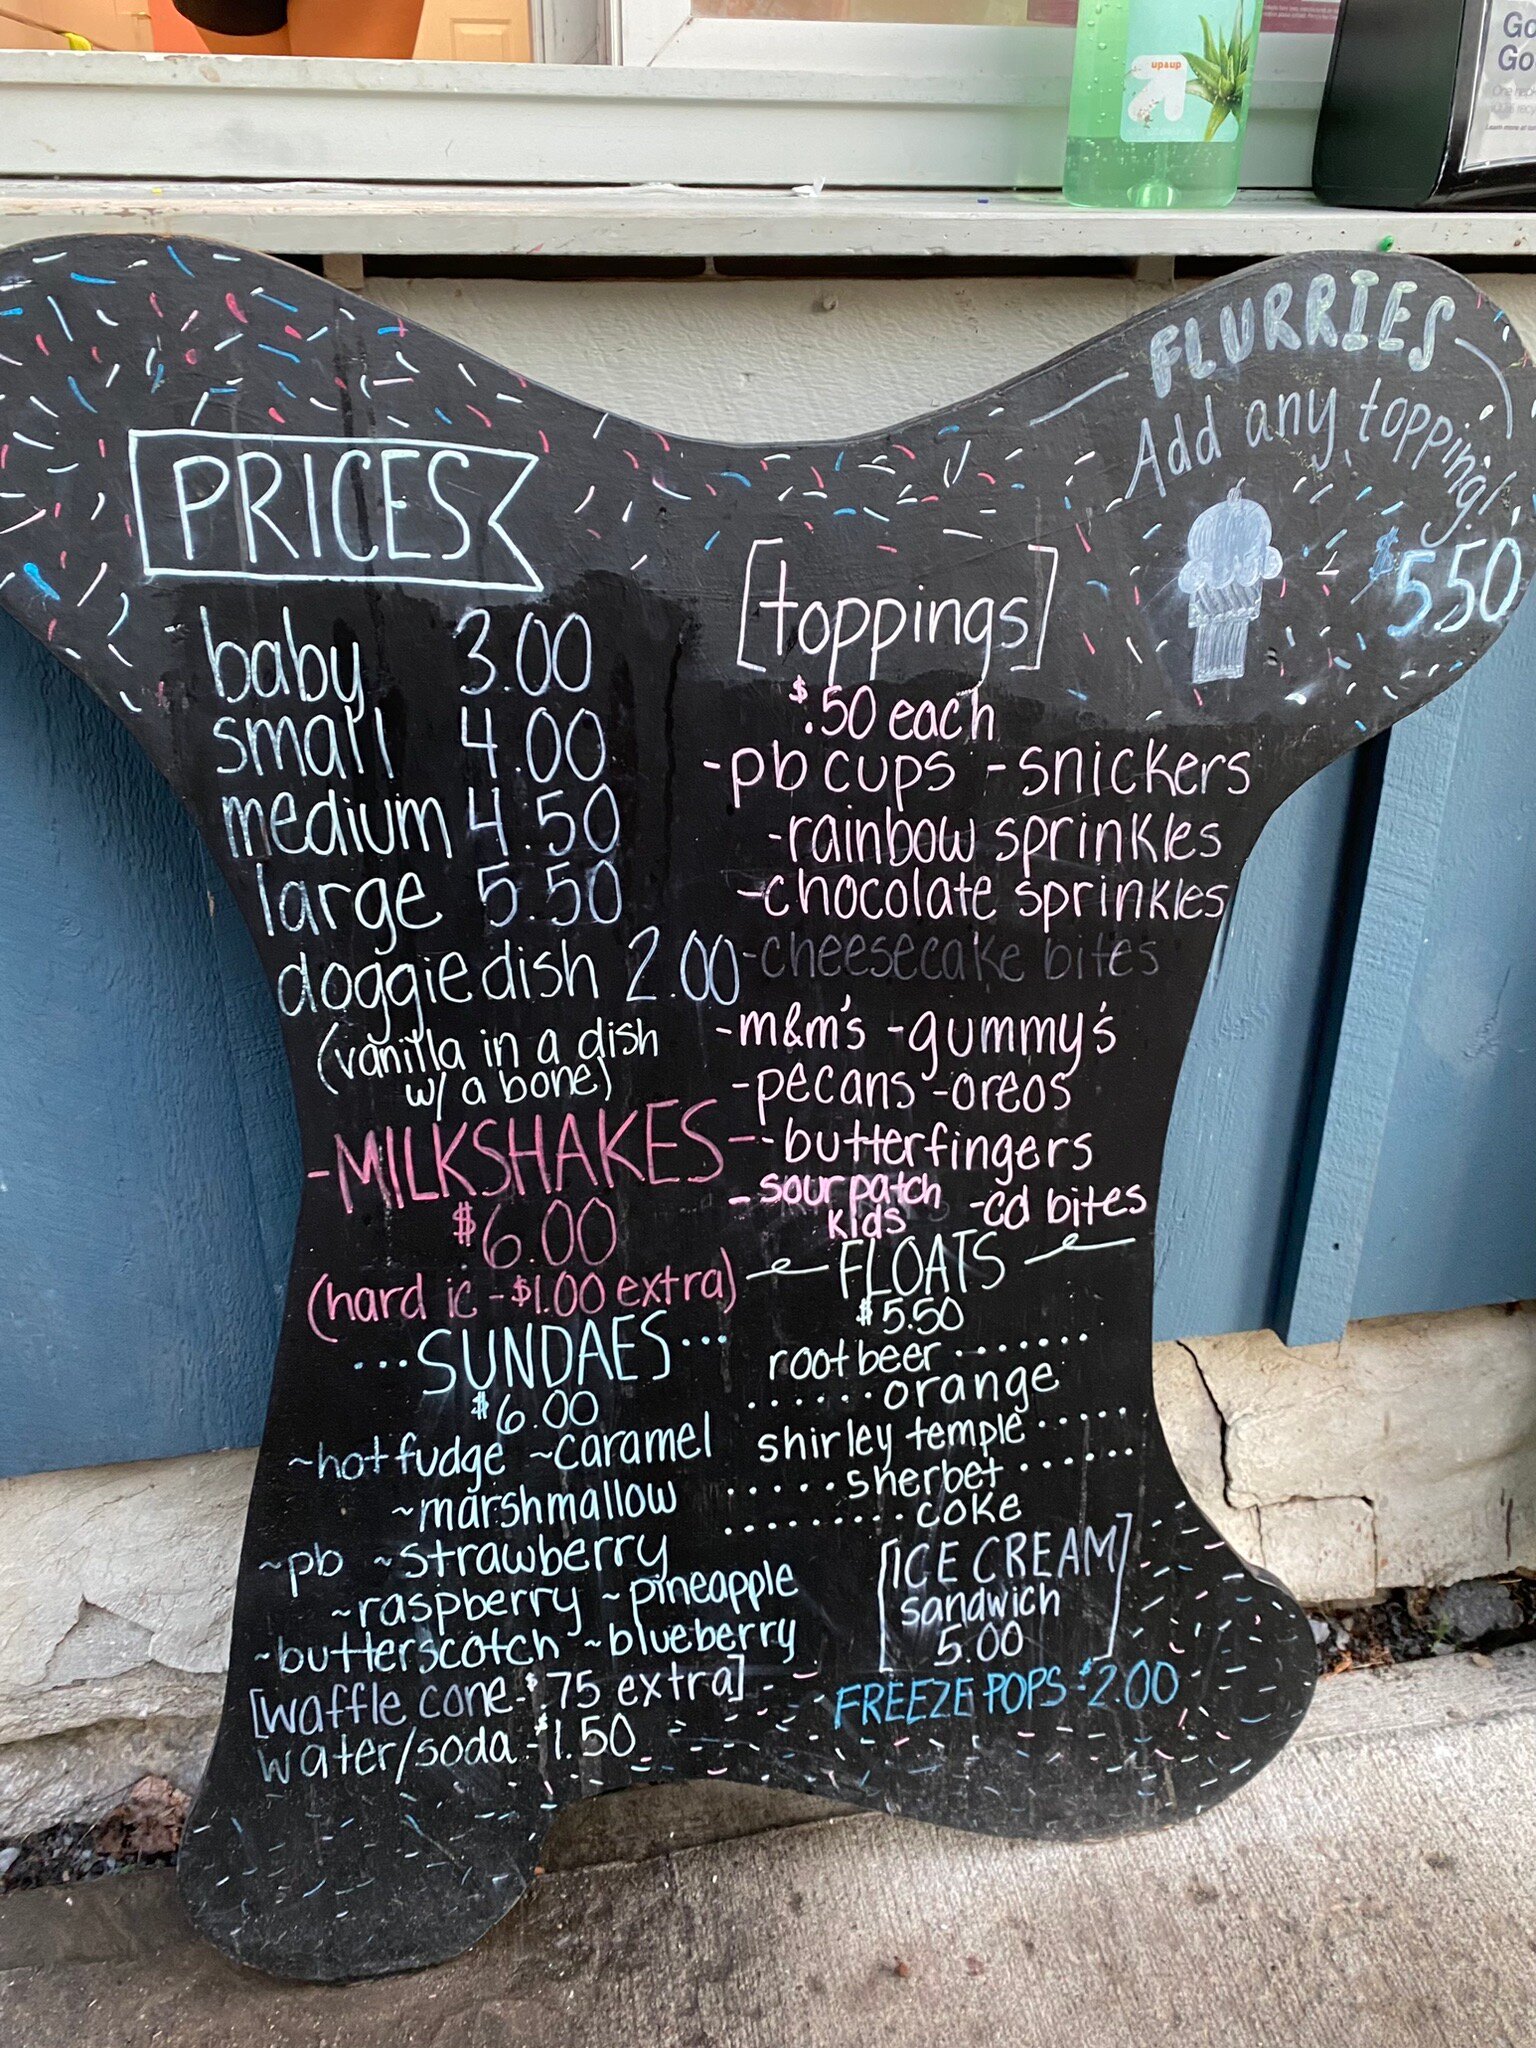 up&up
Go
Goo
PRICES
baby 3.00
small 4.00
medium 4.50
large 5.50
doggie dish 2.00
(vanilla in a dish
w/ a bone)
-MILKSHAKES-
$6.00
(hard ic - $1.00 extra)
...SUNDAES...
$6.00
~hot fudge ~caramel
~marshmallow
~pb ~strawberry
~raspberry ~pineapple
~butterscotch ~blueberry
[waffle cone-$.75 extra]
water/soda-$1.50
FLURRIES
Add any topping!
$5.50
[toppings]
$.50 each
-pb cups -snickers
-rainbow sprinkles
-chocolate sprinkles
-cheesecake bites
-m&m's -gummy's
-pecans -oreos
-butterfingers
-sour patch
kids -cd bites
FLOATS
$5.50
rootbeer.......
......orange
shirley temple.....
.....sherbet......
.........coke
[ICE CREAM]
sandwich
5.00
FREEZE POPS-$2.00